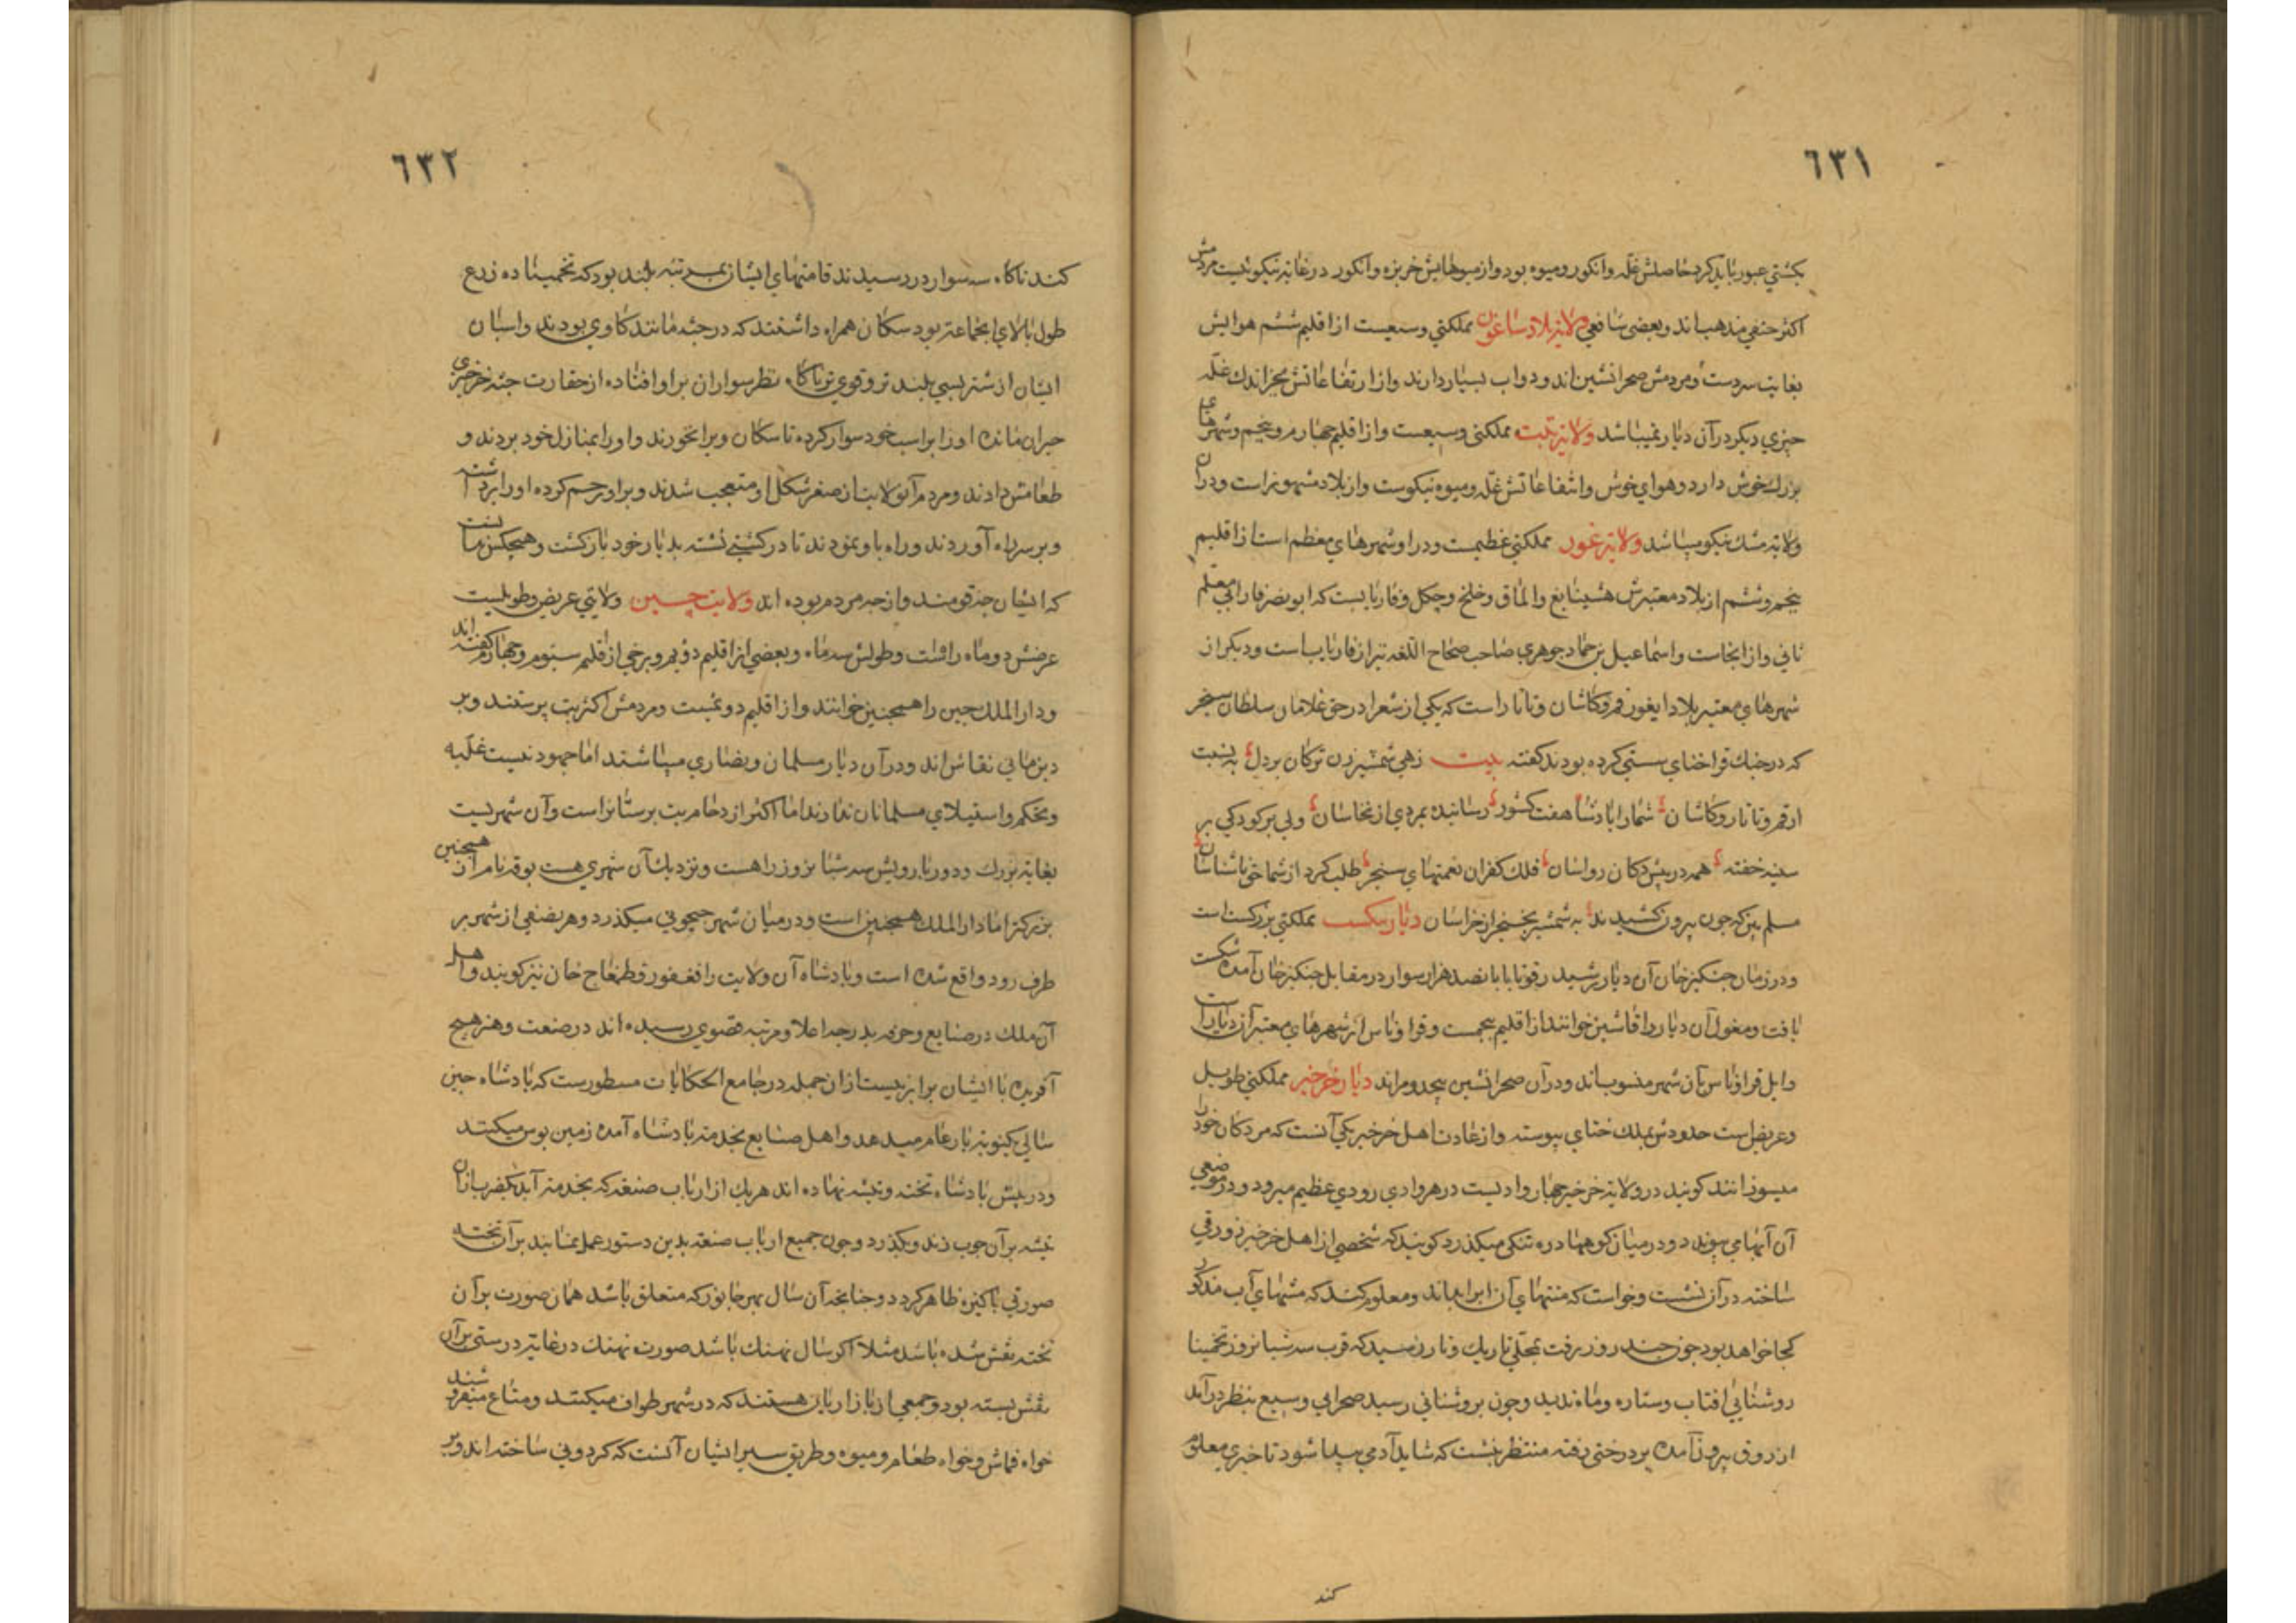 ٦٣١
بكشتي عبور بايد كرد حاصلش غله وانكور وميوه بود واز ميوهايش خربزه وانكور در غايه نيكوئيست مردمش
اكثر حنفي مذهب اند وبعضى شافعي ولايه بلاد ساغون مملكتي وسيعست از اقليم ششم هوايش
بغايت سردست ومردمش صحرا نشين اند ودواب بسيار دارند واز ارتفاعاتش بجز اندك غله
چيزي ديكر در آن ديار نميباشد ولايه تبت مملكتي وسيعست واز اقليم چهارم وپنجم وشهرهاى
بزرك خوش دارد وهواي خوش وانتفاعاتش غله وميوه نيكوست واز بلاد مشهور است ودران
ولايه مشك نيكو ميباشد ولايه غور مملكتي عظيمست ودر او شهرهاي معظم است از اقليم
پنجم وششم از بلاد معتبرش والماق وخلخ وچكل وفاريابست كه ابو نصر فارابي معلم
ثاني واز انجاست واسماعيل بن حماد جوهري صاحب صحاح اللغه نيز از فارياب است وديكر از
شهرهاي معتبر بلاد ايغور قم وكاشان وتاتار است كه يكي از شعرا در حق غلامان سلطان سنجر
كه در جنك قراختاي سستي كرده بودند كفته بيت زهي شمشير زن تركان بردل به نسبت
از قم وتاتار وكاشان شما را بادشا هفت كشور رسانيده بمردي از نخاسان ولي بر كودكي بر
سينه خفته همه در پيش دكان رواسان فلك كفران نعمتهاي سنجر طلب كرد از شما حق ناشناسان
مسلم بين كه چون بيرون كشيدند به شمشير بخنجر از خراسان ديار مملكتي بزركست است
ودر زمان جنكيز خان آن ديار بانصد هزار سوار در مقابل جنكيز خان آمده شكست
يافت ومغول آن ديار را قاشين خوانند از اقليم پنجمست شهرهاي معتبر آن ديار است
بآن شهر منسوب اند ودر آن صحرا نشين بيحد ومر اند ديار خرخير مملكتي طويل
وعريض است حدودش بملك ختاي پيوسته واز عادت اهل خرخير يكي آنست كه مردكان خود را
ميسوزانند كويند در ولايه خرخير چهار واديست در هر وادي رودي عظيم ميرود ودر موضعي
آن آبها مي پيوندد ودر ميان كوهها دره تنكي ميكذرد كويند كه شخصي از اهل خرخير زورقي
ساخته در آن نشست وخواست كه منتهاي آن ابرا بداند ومعلوم كند كه منتهاي آب مذكور
كجا خواهد بود چون چند روز برفت بمحلي تاريك وتار رسيد كه قرب سه شبانروز تخمينا
روشنايي افتاب وستاره وماه نديد وچون بروشنائي رسيد صحرايي وسيع بنظر درآمد
از زورق بيرون آمده بر درختي رفته منتظر بنشست كه شايد آدمي پيدا شود تا خبري معلوم
كند
٦٣٢
كند ناكاه سه سوار در رسيدند قامتهاي ايشان بمرتبه بلند بود كه تخمينا ده زرع
طول بالاي انجماعه بود سكان همراه داشتند كه در جثه مانند كاوي بودند واسبان
ايشان از شتر بسي بلند تر وقوي تر ناكاه نظر سواران بر او افتاده از حقارت جثه خرخيزي
حيران مانده اورا بر اسب خود سوار كرده تا سكان ويرا نخورند واورا بمنازل خود بردند و
طعامش دادند ومردم آن ولايت از صغر شكل او متعجب شدند وبر او رحم كرده اورا برداشته
وبر سر راه آوردند وراه باو نمودند تا در كشتي نشسته بديار خود بازكشت وهيچكس ندانست
كه ايشان چه قومند واز چه مردم بوده اند ولايت چين ولايتي عريض وطويلست
عرضش دو ماه راهست وطولش سه ماه وبعضي از اقليم دويم وبرخي از اقليم سيوم وچهارم كفته اند
ودار الملك چين را هيچنين خوانند واز اقليم دومست ومردمش اكثر بت پرستند وبر
دين ماني نقاش اند ودر آن ديار مسلمان ونصاري ميباشند اما جهود نيست غلبه
وتحكم واستيلاي مسلمانان ندارند اما اكثر ازدحام بت پرستانراست وآن شهريست
بغايه بزرك ودور بارويش سه شبانروز راهست ونزديك آن شهري هست بوقه نام از آن هيچنين
بزركتر اما دار الملك هيچنين است ودر ميان شهر جيحوني ميكذرد وهر نصفي از شهر بر
طرف رود واقع شده است وبادشاه آن ولايت را فغفور وطمغاج خان نيز كويند واهل
آن ملك در صنايع وحرفه بدرجه اعلا ومرتبه قصوي رسيده اند در صنعت وهنر هيچ
آفريده با ايشان برابر نيست از ان جمله در جامع الحكايات مسطور ست كه بادشاه چين
سالي يكنوبه بار عام ميدهد واهل صنايع بخدمه بادشاه آمده زمين بوس ميكنند
ودر پيش بادشاه تخته وتيشه نهاده اند هر يك از ارباب صنعه كه بخدمه آيد يكضربه از آن
تيشه بر آن چوب زند وبكذرد وچون جميع ارباب صنعه بدين دستور عمل نمايند بر آن تخته
صورتي پاكيزه ظاهر كردد وچنانچه آن سال بهر جانور كه متعلق باشد همان صورت بر آن
تخته نقش شده باشد مثلا اكر سال نهنك باشد صورت نهنك در غايه درستي بر آن
نقش بسته بود وجمعي از بازاريان هستند كه در شهر طواف ميكنند ومتاع ميفروشند
خواه قماش وخواه طعام وميوه وطريق سير ايشان آنست كه كردوني ساخته اند وبر